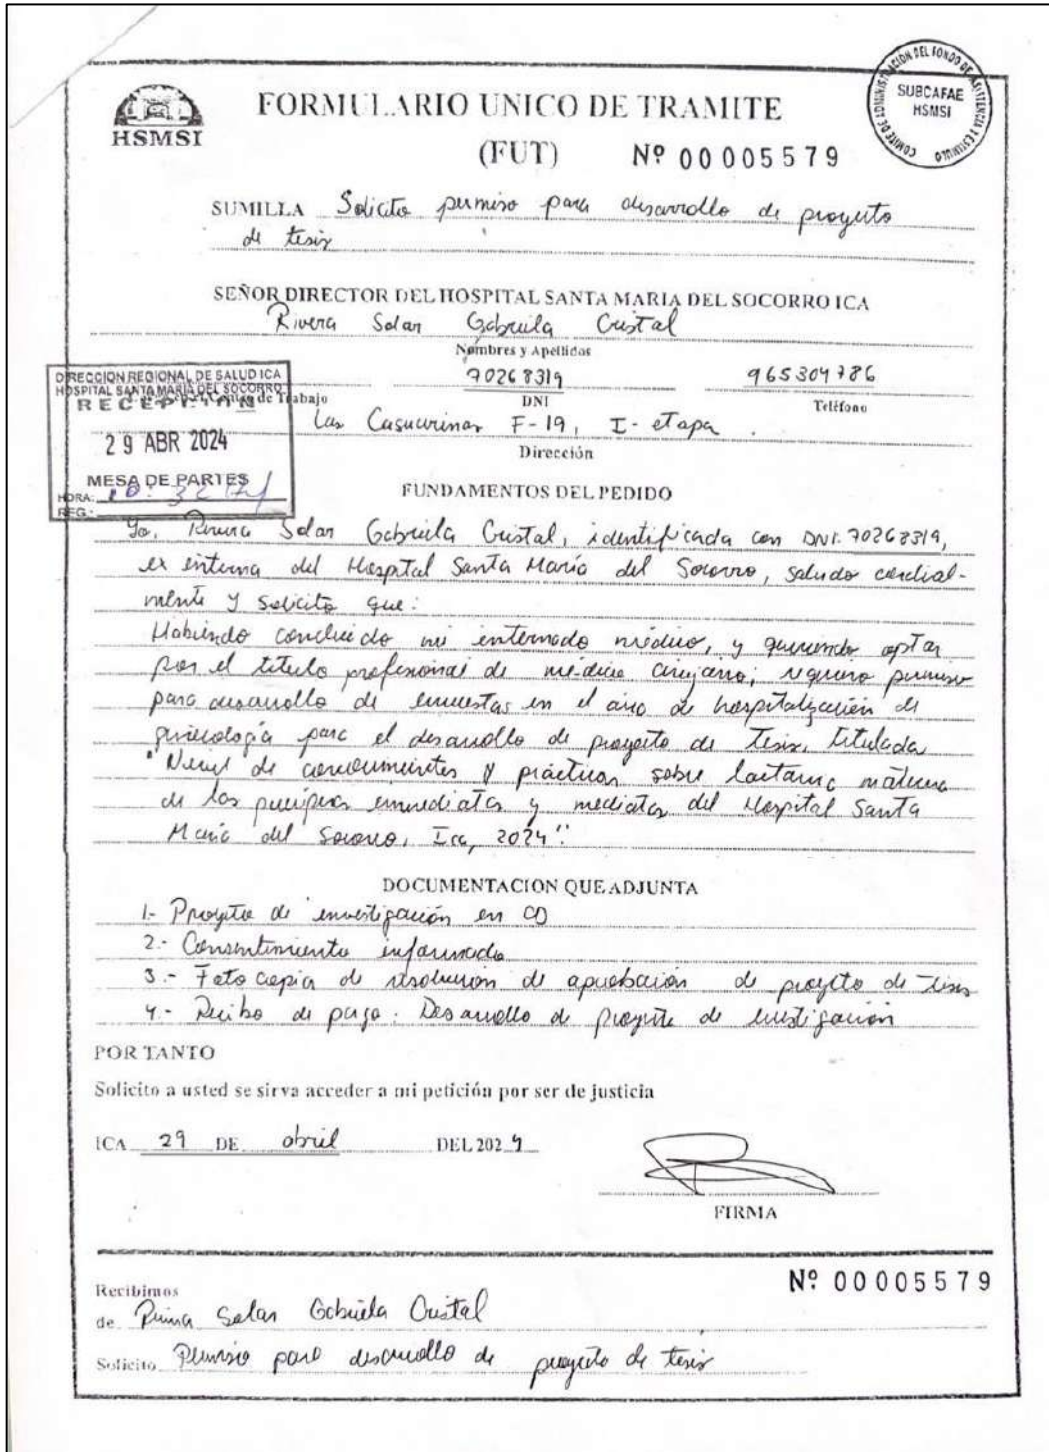 HSMSI
FORMULARIO UNICO DE TRAMITE
(FUT) Nº 00005579
COMITE DE ADMINISTRACION DEL FONDO DE ASISTENCIA Y ESTIMULO
SUBCAFAE
HSMSI
SUMILLA Solicito permiso para desarrollo de proyecto
de tesis
SEÑOR DIRECTOR DEL HOSPITAL SANTA MARIA DEL SOCORRO ICA
Rivera Solar Gabriela Cristal
Nombres y Apellidos
70268319 965304786
DNI Teléfono
de Trabajo
Las Casuarinas F-19, I-etapa.
Dirección
DIRECCION REGIONAL DE SALUD ICA
HOSPITAL SANTA MARIA DEL SOCORRO
RECEPCION
29 ABR 2024
MESA DE PARTES
HORA: 10:32
REG.:
FUNDAMENTOS DEL PEDIDO
Yo, Rivera Solar Gabriela Cristal, identificada con DNI: 70268319,
ex interna del Hospital Santa María del Socorro, saludo cordial-
mente y solicito que:
Habiendo concluido mi internado médico, y queriendo optar
por el título profesional de médico cirujano; requiero permiso
para desarrollo de encuestas en el área de hospitalización de
ginecología para el desarrollo de proyecto de tesis, titulada
"Nivel de conocimientos y prácticas sobre lactancia materna
de las puérperas inmediatas y mediatas del Hospital Santa
María del Socorro, Ica, 2024".
DOCUMENTACION QUE ADJUNTA
1.- Proyecto de investigación en CD
2.- Consentimiento informado
3.- Fotocopia de resolución de aprobación de proyecto de tesis
4.- Recibo de pago: Desarrollo de proyecto de investigación
POR TANTO
Solicito a usted se sirva acceder a mi petición por ser de justicia
ICA 29 DE abril DEL 2024
FIRMA
Nº 00005579
Recibimos
de Rivera Solar Gabriela Cristal
Solicito Permiso para desarrollo de proyecto de tesis